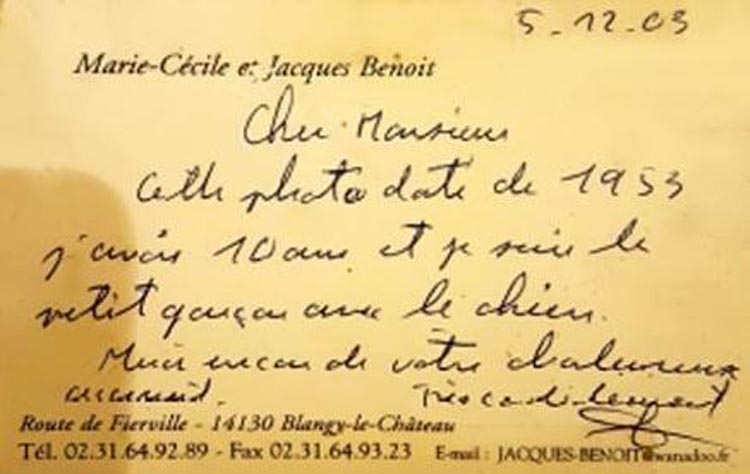 5-12-03
Marie-Cécile et Jacques Benoit
Cher Monsieur
Cette photo date de 1953
j'avais 10 ans et je suis le
petit garçon avec le chien.
Merci encore de votre chaleureux
accueil. Très cordialement
Route de Fierville - 14130 Blangy-le-Château
Tél. 02.31.64.92.89 - Fax 02.31.64.93.23 E-mail : JACQUES-BENOIT@wanadoo.fr